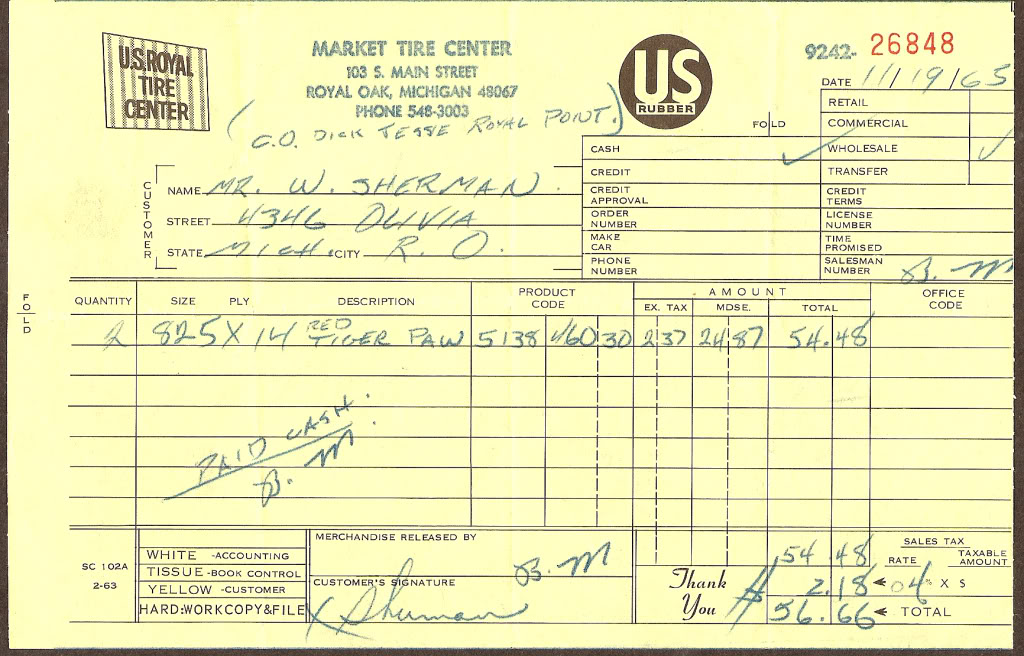 U.S. ROYAL
TIRE
CENTER
MARKET TIRE CENTER
103 S. MAIN STREET
ROYAL OAK, MICHIGAN 48067
PHONE 548-3003
(C.O. DICK TESSE ROYAL POINT.)
US
RUBBER
9242- 26848
DATE 11/19/65
FOLD
RETAIL
COMMERCIAL
CASH ✓ WHOLESALE ✓
CREDIT TRANSFER
CREDIT APPROVAL CREDIT TERMS
ORDER NUMBER LICENSE NUMBER
MAKE CAR TIME PROMISED
PHONE NUMBER SALESMAN NUMBER B. M
CUSTOMER
NAME MR. W. SHERMAN
STREET 4346 OLIVIA
STATE MICH. CITY R. O.
FOLD
QUANTITY SIZE PLY DESCRIPTION PRODUCT CODE AMOUNT OFFICE CODE
EX. TAX MDSE. TOTAL
2 825 X 14 RED TIGER PAW 5138 460 30 2 37 24 87 54.48
PAID CASH.
B. M
SC 102A
2-63
WHITE -ACCOUNTING
TISSUE -BOOK CONTROL
YELLOW -CUSTOMER
HARD:WORK COPY & FILE
MERCHANDISE RELEASED BY
B. M
CUSTOMER'S SIGNATURE
X Sherman
Thank
You
SALES TAX
RATE TAXABLE AMOUNT
54.48
2.18 04 X $
$ 56.66 TOTAL